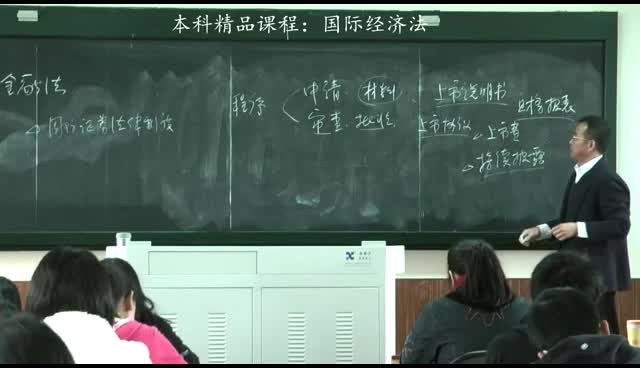 本科精品课程：国际经济法
金融法
国际证券法律制度
程序
申请 材料
审查 批准
上市说明书
财务报表
上市协议
上市费
持续披露